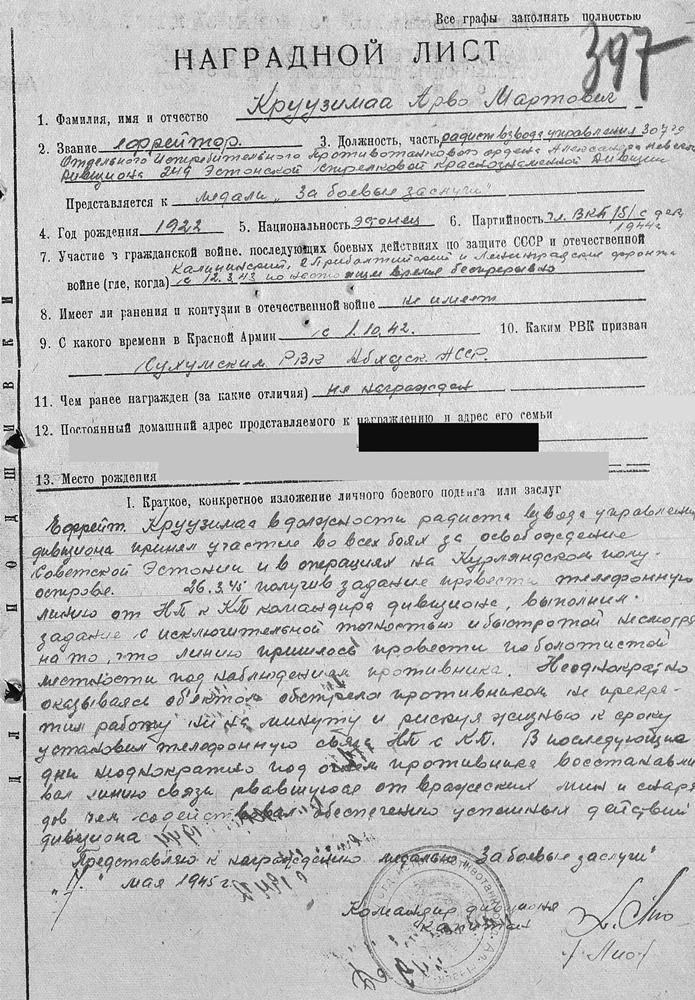 Все графы заполнять полностью
397
НАГРАДНОЙ ЛИСТ
1. Фамилия, имя и отчество Круузимаа Арво Мартович
2. Звание ефрейтор. 3. Должность, часть радист взвода управления 307го
Отдельного Истребительного Противотанкового ордена Александра Невского
Дивизиона 249 Эстонской стрелковой Краснознаменной Дивизии
Представляется к медали „За боевые заслуги"
4. Год рождения 1922 5. Национальность эстонец 6. Партийность чл. ВКП/б/ с дек.
1944г
7. Участие з гражданской войне. последующих боевых действиях по защите СССР и отечественной
Калининский, 2 Прибалтийский и Ленинградский фронты
войне (где, когда) с 12.3.43 по настоящее время беспрерывно
8. Имеет ли ранения и контузии в отечественной войне не имеет
9. С какого времени в Красной Армии с 1.10.42. 10. Каким РВК призван
Сухумским РВК Абхадск. АССР.
11. Чем ранее награжден (за какие отличия) не награжден
12. Постоянный домашний адрес продставляемого к награждению и адрес его семьи
13. Место рождения
I. Краткое, конкретное изложение личного боевого подвига или заслуг
Ефрейт. Круузимаа в должности радиста взвода управления
дивизиона принял участие во всех боях за освобождение
Советской Эстонии и в операциях на Курляндском полу-
острове. 26.3.45 получив задание провести телефонную
линию от НП к КП командира дивизиона, выполнил
задание с исключительной точностью и быстротой несмотря
на то, что линию пришлось провести по болотистой
местности под наблюдением противника. Неоднократно
оказываясь объектом обстрела противником не прекра-
тил работу ни на минуту и рискуя жизнью к сроку
установил телефонную связь НП с КП. В последующие
дни неоднократно под огнем противника восстанавли
вал линию связи рвавшуюся от вражеских мин и снаря
дов чем содействовал обеспечению успешных действий
дивизиона
Представляю к награждению медалью „За боевые заслуги"
"7." мая 1945 г.
Командир дивизиона
капитан
/Лио/
ДЛЯ ПОДШИВКИ